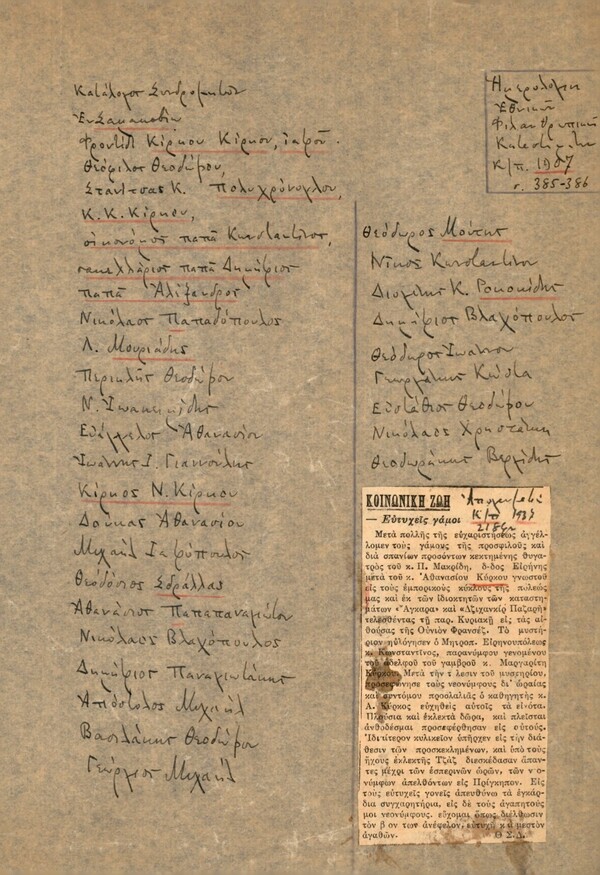 Κατάλογος Συνδρομητών
Εν
Φροντίδι Κίρκου Κίρκου, ιατρού.
Θεόφιλος Θεοδώρου,
Στανίτσας Κ. Πολυχρόνογλου,
Κ. Κ. Κίρκου,
οικονόμος παπά Κωνσταντίνος,
σακελλάριος παπά Δημήτριος
παπά Αλέξανδρος
Νικόλαος Παπαδόπουλος
Λ. Μουριάδης
Περικλής Θεοδώρου
Ν. Ιωακειμίδης
Ευάγγελος Αθανασίου
Ιωάννης Ι. Γιαννούλης
Κίρκος Ν. Κίρκου
Δούκας Αθανασίου
Μιχαήλ Ιατρόπουλος
Θεοδόσιος Σδράλλας
Αθανάσιος
Νικόλαος Βλαχόπουλος
Δημήτριος Παναγιωτάκης
Απόστολος Μιχαήλ
Βασιλάκης Θεοδώρου
Γεώργιος Μιχαήλ
Ημερολόγιον
Εθνικών
Φιλανθρωπικών
Καταστημάτων
Κ/π. 1907
σ. 385-386
Θεόδωρος Μούτης
Νίκος Κωνσταντίνου
Διομήδης Κ.
Δημήτριος Βλαχόπουλος
Θεόδωρος Ιωάννου
Γεωργάκης Κώστα
Ευστάθιος Θεοδώρου
Νικόλαος Χρηστάκη
Θεοδωράκης Βεργίδης
ΚΟΙΝΩΝΙΚΗ ΖΩΗ
Απογευματινή
Κ/π 1937
— Εὐτυχεῖς γάμοι
Μετὰ πολλῆς τῆς εὐχαριστήσεως ἀγγέλ-
λομεν τοὺς γάμους τῆς προσφιλοῦς καὶ
διὰ σπανίων προσόντων κεκτημένης θυγα-
τρὸς τοῦ κ. Π. Μακρίδη, δ-δος Εἰρήνης
μετὰ τοῦ κ. Ἀθανασίου Κύρκου γνωστοῦ
εἰς τοὺς ἐμπορικοὺς κύκλους τῆς πόλεώς
μας καὶ ἐκ τῶν ἰδιοκτητῶν τῶν καταστη-
μάτων «Ἄγκαρα» καὶ «Ἀζιχανκὶρ Παζαρὴ»
τελεσθέντας τῇ παρ. Κυριακῇ εἰς τὰς αἰ-
θούσας τῆς Οὐνιὸν Φρανσέζ. Τὸ μυστή-
ριον ηὐλόγησεν ὁ Μητροπ. Εἰρηνουπόλεως
κ. Κωνσταντῖνος, παρανύμφου γενομένου
τοῦ ἀδελφοῦ τοῦ γαμβροῦ κ. Μαργαρίτη
Κύρκου. Μετὰ τὴν τέλεσιν τοῦ μυστηρίου,
προσεφώνησε τοὺς νεονύμφους δι᾽ ὡραίας
καὶ συντόμου προσλαλιᾶς ὁ καθηγητὴς κ.
Λ. Κύρκος εὐχηθεὶς αὐτοῖς τὰ εἰκότα.
Πλούσια καὶ ἐκλεκτὰ δῶρα, καὶ πλεῖσται
ἀνθοδέσμαι προσεφέρθησαν εἰς αὐτούς.
Ἰδιαίτερον κυλικεῖον ὑπῆρχεν εἰς τὴν διά-
θεσιν τῶν προσκεκλημένων, καὶ ὑπὸ τοὺς
ἤχους ἐκλεκτῆς Τζὰζ διεσκέδασαν ἅπαν-
τες μέχρι τῶν ἑσπερινῶν ὡρῶν, τῶν νεο-
νύμφων ἀπελθόντων εἰς Πρίγκηπον. Εἰς
τοὺς εὐτυχεῖς γονεῖς ἀπευθύνω τὰ ἐγκάρ-
δια συγχαρητήρια, εἰς δὲ τοὺς ἀγαπητούς
μοι νεονύμφους, εὔχομαι ὅπως διέλθωσιν
τὸν βίον των ἀνέφελον, εὐτυχῆ καὶ μεστὸν
ἀγαθῶν. Θ Σ.Δ.